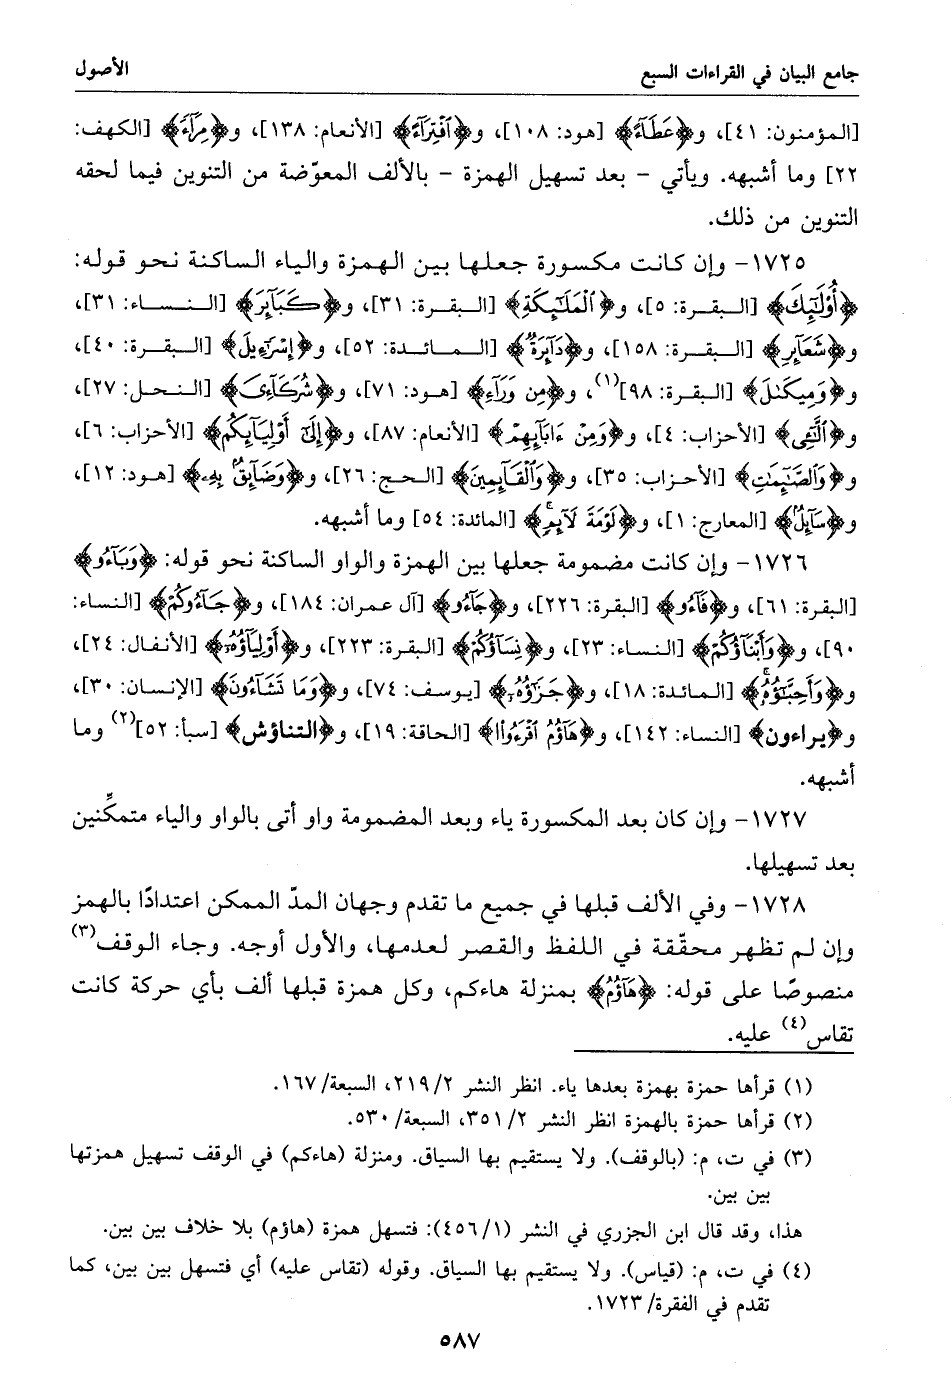 جامع البيان في القراءات السبع الأصول
[المؤمنون: ٤١]، و﴿عَطَآءً﴾ [هود: ١٠٨]، و﴿ٱفْتِرَآءً﴾ [الأنعام: ١٣٨]، و﴿مِرَآءً﴾ [الكهف:
٢٢] وما أشبهه. ويأتي - بعد تسهيل الهمزة - بالألف المعوّضة من التنوين فيما لحقه
التنوين من ذلك.
١٧٢٥- وإن كانت مكسورة جعلها بين الهمزة والياء الساكنة نحو قوله:
﴿أُوْلَٰٓئِكَ﴾ [البقرة: ٥]، و﴿ٱلْمَلَٰٓئِكَةِ﴾ [البقرة: ٣١]، و﴿كَبَآئِرَ﴾ [النساء: ٣١]،
و﴿شَعَآئِرِ﴾ [البقرة: ١٥٨]، و﴿دَآئِرَةٌ﴾ [المائدة: ٥٢]، و﴿إِسْرَٰٓءِيلَ﴾ [البقرة: ٤٠]،
و﴿وَمِيكَىٰلَ﴾ [البقرة: ٩٨](١)، و﴿مِن وَرَآءِ﴾ [هود: ٧١]، و﴿شُرَكَآءِىَ﴾ [النحل: ٢٧]،
و﴿ٱلَّٰٓـِٔى﴾ [الأحزاب: ٤]، و﴿وَمِنْ ءَابَآئِهِمْ﴾ [الأنعام: ٨٧]، و﴿إِلَىٰٓ أَوْلِيَآئِكُم﴾ [الأحزاب: ٦]،
و﴿وَٱلصَّٰٓئِمَٰتِ﴾ [الأحزاب: ٣٥]، و﴿وَٱلْقَآئِمِينَ﴾ [الحج: ٢٦]، و﴿وَضَآئِقٌۢ بِهِۦ﴾ [هود: ١٢]،
و﴿سَآئِلٌۢ﴾ [المعارج: ١]، و﴿لَوْمَةَ لَآئِمٍۚ﴾ [المائدة: ٥٤] وما أشبهه.
١٧٢٦- وإن كانت مضمومة جعلها بين الهمزة والواو الساكنة نحو قوله: ﴿وَبَآءُو﴾
[البقرة: ٦١]، و﴿فَآءُو﴾ [البقرة: ٢٢٦]، و﴿جَآءُو﴾ [آل عمران: ١٨٤]، و﴿جَآءُوكُمْ﴾ [النساء:
٩٠]، و﴿وَأَبْنَآؤُكُمْ﴾ [النساء: ٢٣]، و﴿نِسَآؤُكُمْ﴾ [البقرة: ٢٢٣]، و﴿أَوْلِيَآؤُهُۥٓ﴾ [الأنفال: ٢٤]،
و﴿وَأَحِبَّٰٓؤُهُۥۚ﴾ [المائدة: ١٨]، و﴿جَزَٰٓؤُهُۥٓ﴾ [يوسف: ٧٤]، و﴿وَمَا تَشَآءُونَ﴾ [الإنسان: ٣٠]،
و﴿يراءون﴾ [النساء: ١٤٢]، و﴿هَآؤُمُ ٱقْرَءُوا۟﴾ [الحاقة: ١٩]، و﴿التناؤش﴾ [سبأ: ٥٢](٢) وما
أشبهه.
١٧٢٧- وإن كان بعد المكسورة ياء وبعد المضمومة واو أتى بالواو والياء متمكِّنين
بعد تسهيلها.
١٧٢٨- وفي الألف قبلها في جميع ما تقدم وجهان المدّ الممكن اعتدادًا بالهمز
وإن لم تظهر محقّقة في اللفظ والقصر لعدمها، والأول أوجه. وجاء الوقف(٣)
منصوصًا على قوله: ﴿هَآؤُمُ﴾ بمنزلة هاءكم، وكل همزة قبلها ألف بأي حركة كانت
تقاس(٤) عليه.
(١) قرأها حمزة بهمزة بعدها ياء. انظر النشر ٢/٢١٩، السبعة/١٦٧.
(٢) قرأها حمزة بالهمزة انظر النشر ٢/٣٥١، السبعة/٥٣٠.
(٣) في ت، م: (بالوقف). ولا يستقيم بها السياق. ومنزلة (هاءكم) في الوقف تسهيل همزتها
بين بين.
هذا، وقد قال ابن الجزري في النشر (١/٤٥٦): فتسهل همزة (هاؤم) بلا خلاف بين بين.
(٤) في ت، م: (قياس). ولا يستقيم بها السياق. وقوله (تقاس عليه) أي فتسهل بين بين، كما
تقدم في الفقرة/١٧٢٣.
٥٨٧